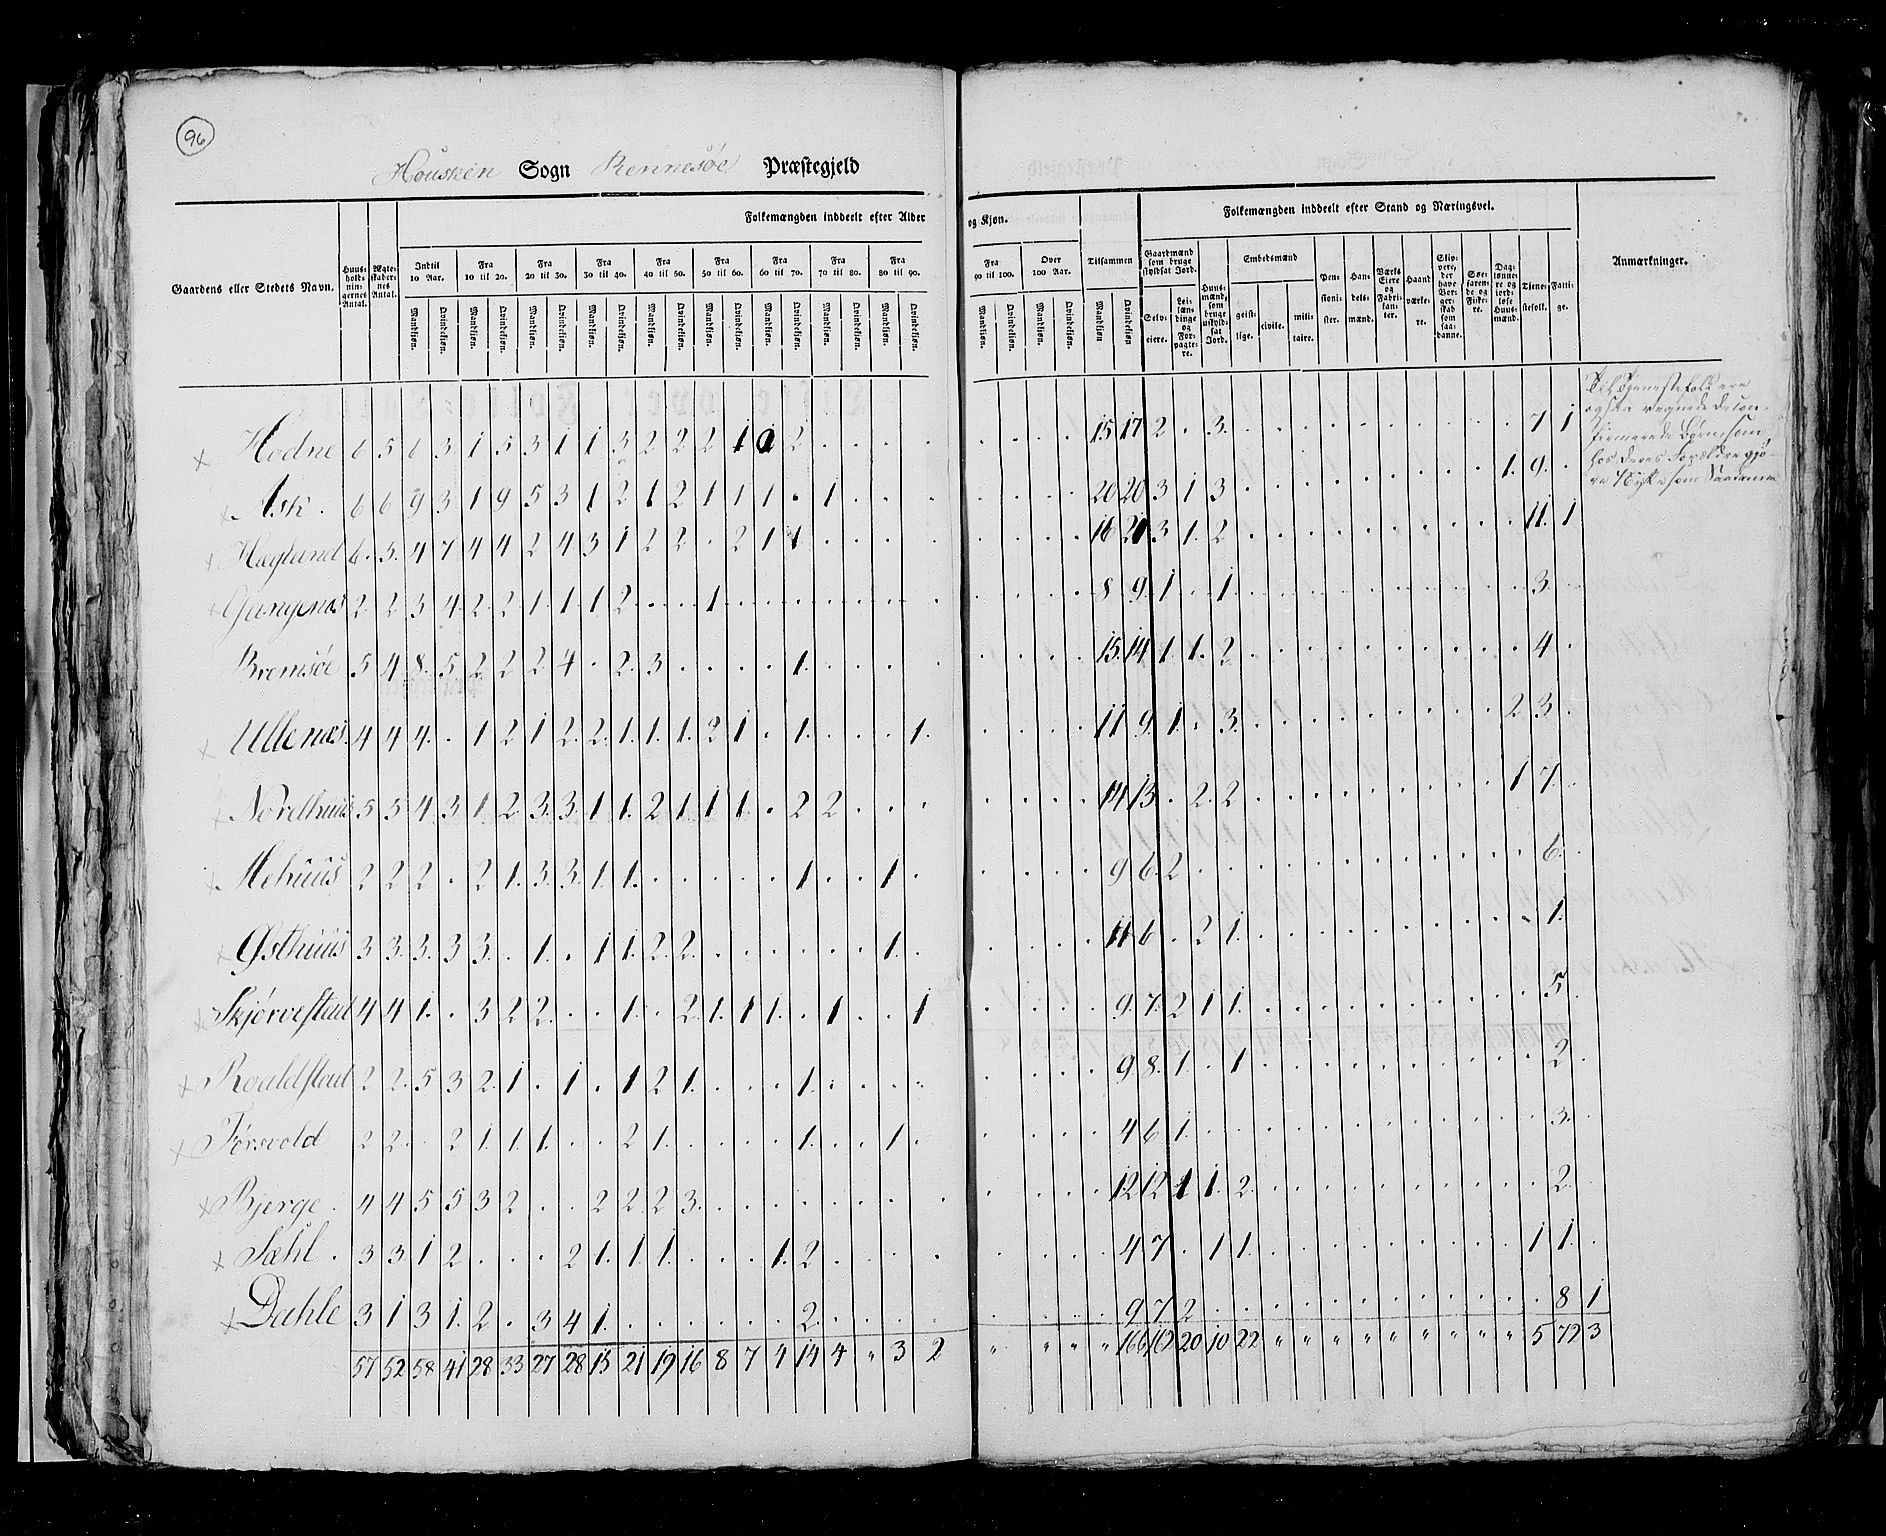 96
Housken Sogn Rennesøe Præstegjeld
Folkemængden inddeelt efter Alder og Kjøn.
Folkemængden inddeelt efter Stand og Næringsvei.
Gaardens eller Stedets Navn.
Huus-hold-nin-gernes Antal.
Ægte-skaber-nes Antal.
Indtil 10 Aar.
Fra 10 til 20.
Fra 20 til 30.
Fra 30 til 40.
Fra 40 til 50.
Fra 50 til 60.
Fra 60 til 70.
Fra 70 til 80.
Fra 80 til 90.
Fra 90 til 100.
Over 100 Aar.
Tilsammen
Mandkjøn. Qvindekjøn.
Gaardmænd som bruge skyldsat Jord.
Selv-eiere.
Lei-læn-dinge og For-pagte-re.
Huus-mænd, som bruge uskyld-sat Jord.
Embedsmænd
geist-lige.
civile.
mili-taire.
Pen-sioni-ster.
Han-dels-mænd.
Værks Eiere og Fabri-kan-ter.
Haand-værke-re.
Skip-pere, der have Bor-ger-skab som saa-danne.
Søe-faren-de og Fiske-re.
Dag-lønne-re og jord-løse Huus-mænd.
Tjene-stefolk.
Fatti-ge.
Anmærkninger.
Hodne 6 5 6 3 1 5 3 1 1 3 2 2 2 1 1 2 . . . . . . . . 15 17 2 . 3 . . . . . . . . . . 7 1
Ask . 6 6 9 3 1 9 5 3 1 2 1 2 1 1 1 . 1 . . . . . . . 20 20 3 1 3 . . . . . . . . . 1 9 .
Hæglund 6 5 4 7 4 4 2 4 3 1 2 2 . 2 1 1 . . . . . . . . 16 21 3 1 2 . . . . . . . . . . 11 1
Gangenæs 2 2 3 4 2 2 1 1 1 2 . . 1 . . . . . . . . . . . 8 9 1 . 1 . . . . . . . . . . 3 .
Bremsøe 5 4 8 5 2 2 2 4 . 2 3 . . . . 1 . . . . . . . . 15 14 1 1 2 . . . . . . . . . . 4 .
Ullenæs 4 4 4 . 1 2 1 2 2 1 1 1 2 1 . 1 . . . 1 . . . . 11 9 1 . 3 . . . . . . . . . 2 3 .
Nordhuus 5 5 4 3 1 2 3 3 1 1 2 1 1 1 . 2 2 . . . . . . . 14 13 . 2 2 . . . . . . . . . 1 7 .
Mehuus 2 2 2 . 2 1 3 3 1 1 . . . . . 1 . . 1 . . . . . 9 6 2 . . . . . . . . . . . . 6 .
Østhuus 3 3 3 3 3 . 1 . 1 1 2 2 . . . . . . 1 . . . . . 11 6 . 2 1 . . . . . . . . . . 1 .
Skjørvestad 4 4 1 . 3 2 2 . . 1 . 2 1 1 1 . 1 . . 1 . . . . 9 7 2 1 1 . . . . . . . . . . 5 .
Roaldstad 2 2 5 3 2 1 . 1 . 1 2 1 . . . 1 . . . . . . . . 9 8 1 . 1 . . . . . . . . . . 2 .
Førsvold 2 2 . 2 1 1 1 . . 2 1 . . . . 1 . . 1 . . . . . 4 6 1 . . . . . . . . . . . . 3 .
Bjerge . 4 4 5 5 3 2 . . 2 2 2 3 . . . . . . . . . . . . 12 12 1 1 2 . . . . . . . . . . 2 .
Sæhl . 3 3 1 2 . . . 2 1 1 1 . . . 1 2 . . . . . . . . 4 7 . 1 1 . . . . . . . . . 1 1 .
Dahle 3 1 3 1 2 . 3 4 1 . . . . . . 2 . . . . . . . . 9 7 2 . . . . . . . . . . . . 8 1
57 52 58 41 28 33 27 28 15 21 19 16 8 7 4 14 4 " 3 2 " " " " 166 162 20 10 22 " " " " " " " " " 5 72 3
Til Tjenestefolk ere
ogsaa regnede de con-
firmerede Børn som
hos deres Forældre gjø-
re Nytte som Saadanne